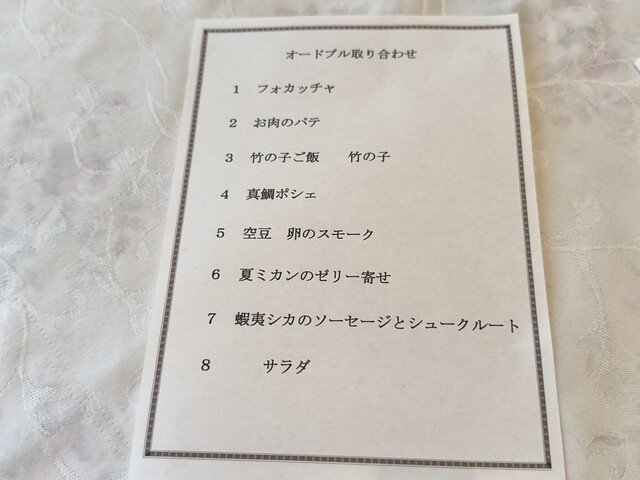 オードブル取り合わせ
1 フォカッチャ
2 お肉のパテ
3 竹の子ご飯 竹の子
4 真鯛ポシェ
5 空豆 卵のスモーク
6 夏ミカンのゼリー寄せ
7 蝦夷シカのソーセージとシュークルート
8 サラダ